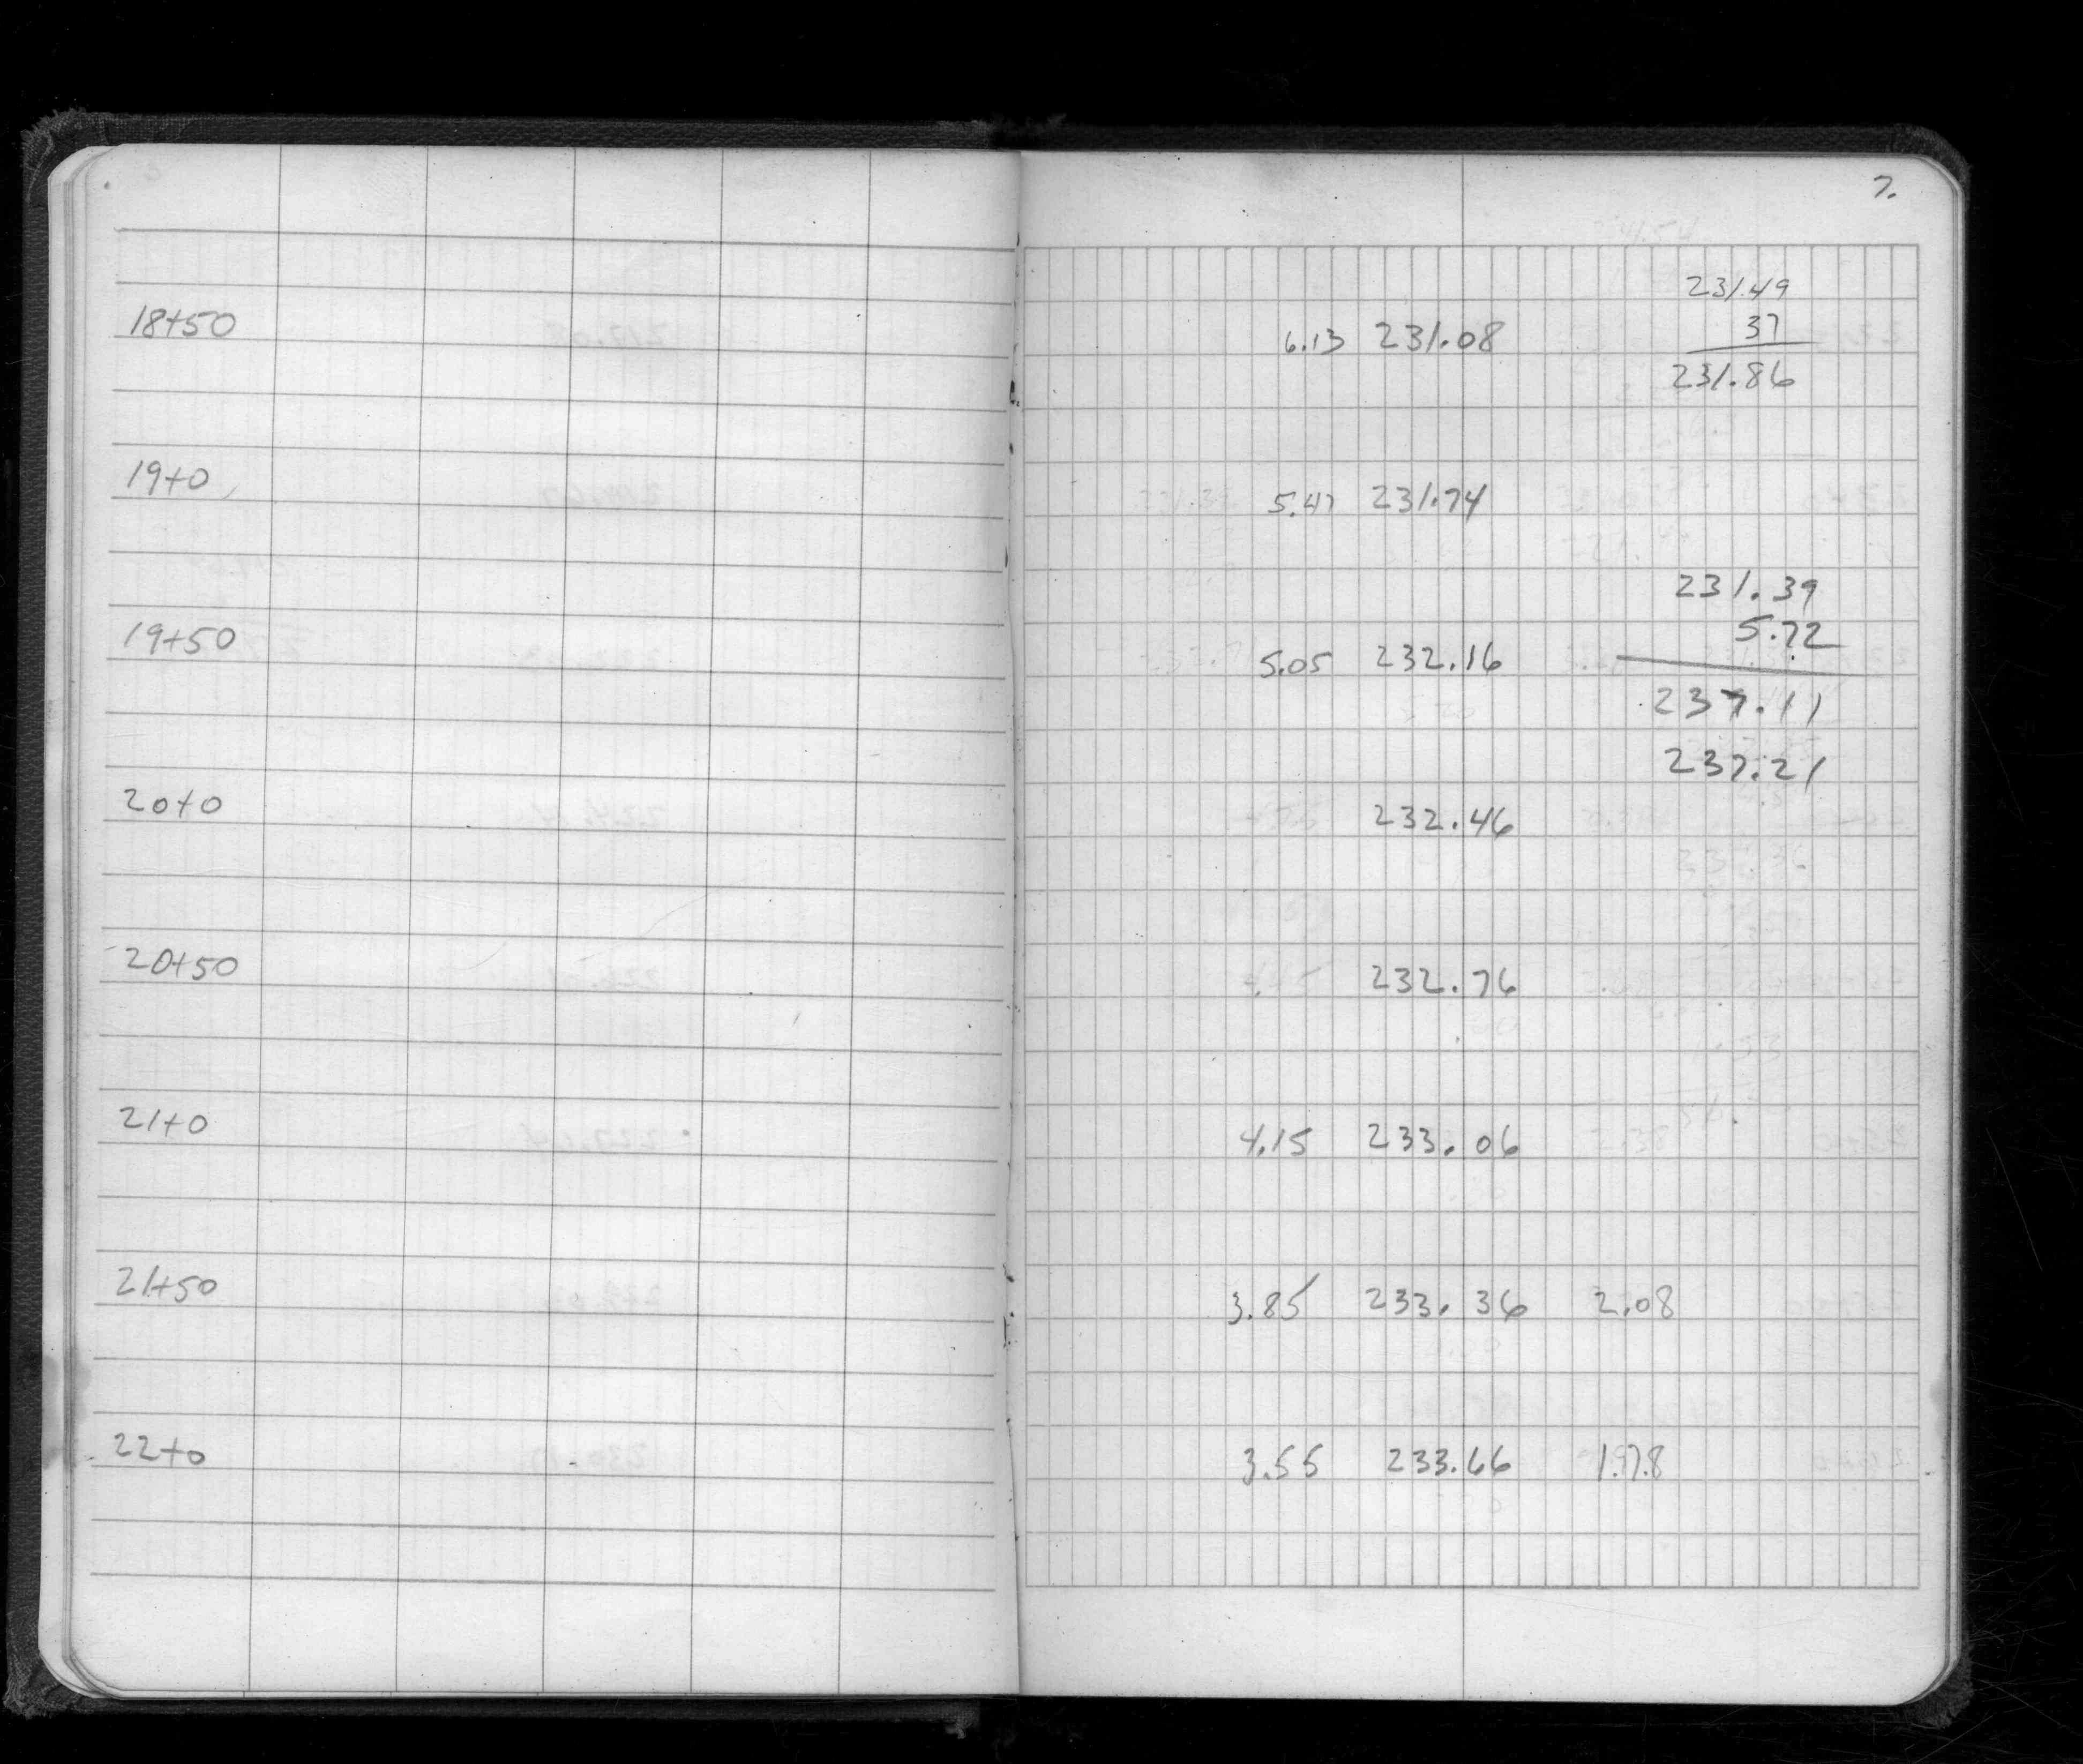 7.
231.49
18+50 6.13 231.08 37
231.86
19+0 5.47 231.74
231.39
5.72
19+50 5.05 232.16
237.11
237.21
20+0 232.46
20+50 4.45 232.76
21+0 4.15 233.06
21+50 3.85 233.36 2.08
22+0 3.55 233.66 1.78